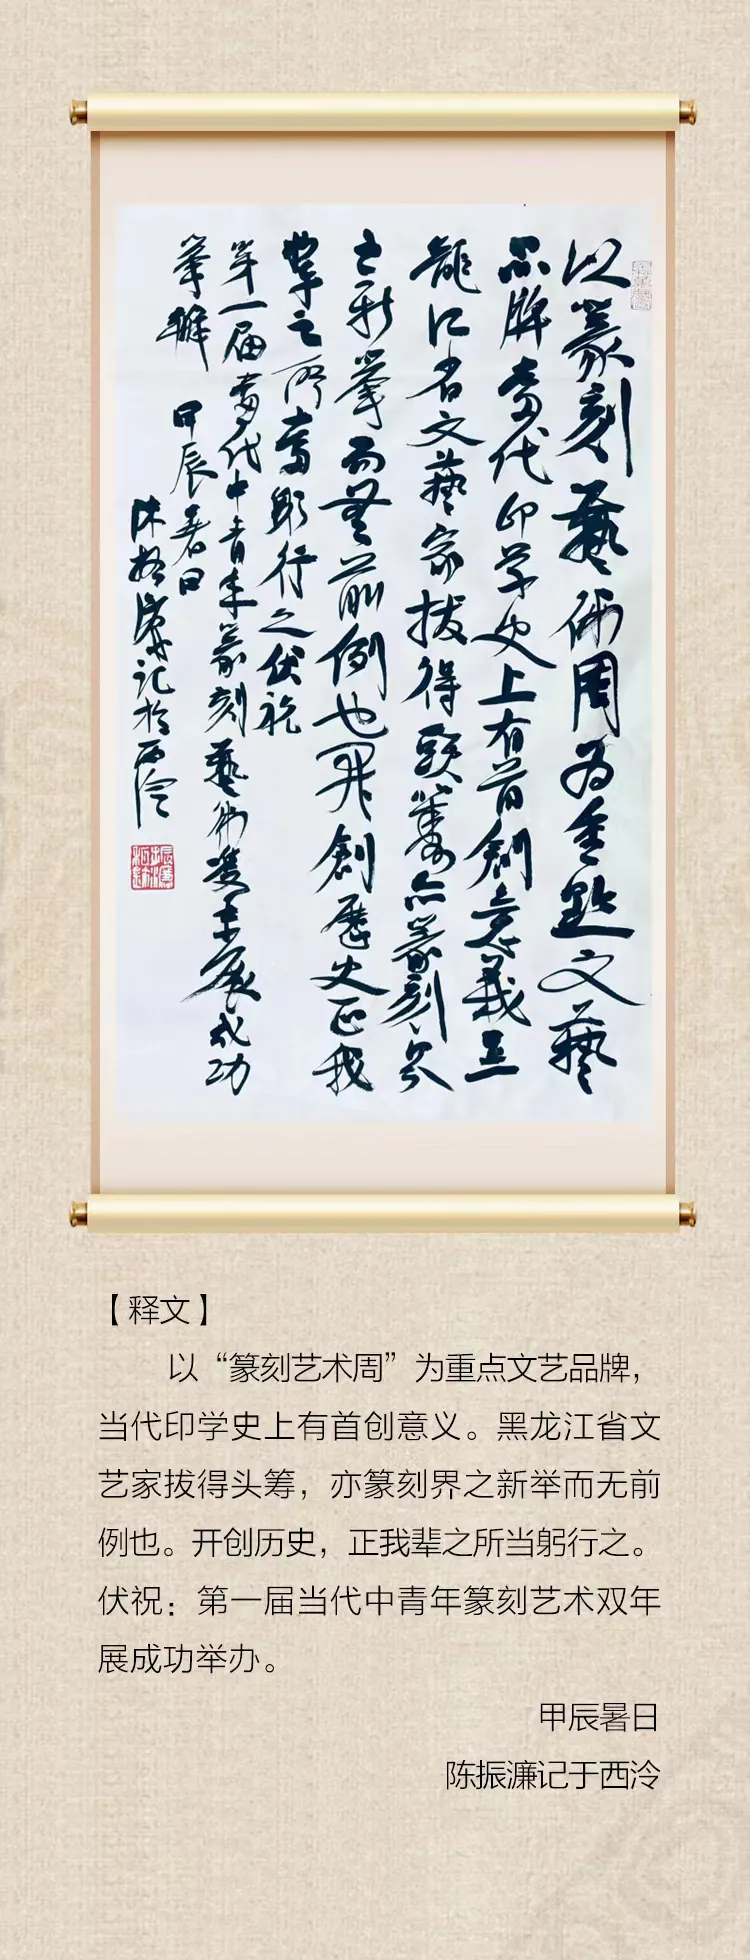 以篆刻藝術周為重點文藝
品牌當代印學史上有首創意義黑
龍江省文藝家拔得頭籌亦篆刻界
之新舉而無前例也開創歷史正我
輩之所當躬行之伏祝
第一届當代中青年篆刻藝術雙年展成功
舉辦
甲辰暑日
陳振濂記於西泠
【释文】
以“篆刻艺术周”为重点文艺品牌，
当代印学史上有首创意义。黑龙江省文
艺家拔得头筹，亦篆刻界之新举而无前
例也。开创历史，正我辈之所当躬行之。
伏祝：第一届当代中青年篆刻艺术双年
展成功举办。
甲辰暑日
陈振濂记于西泠